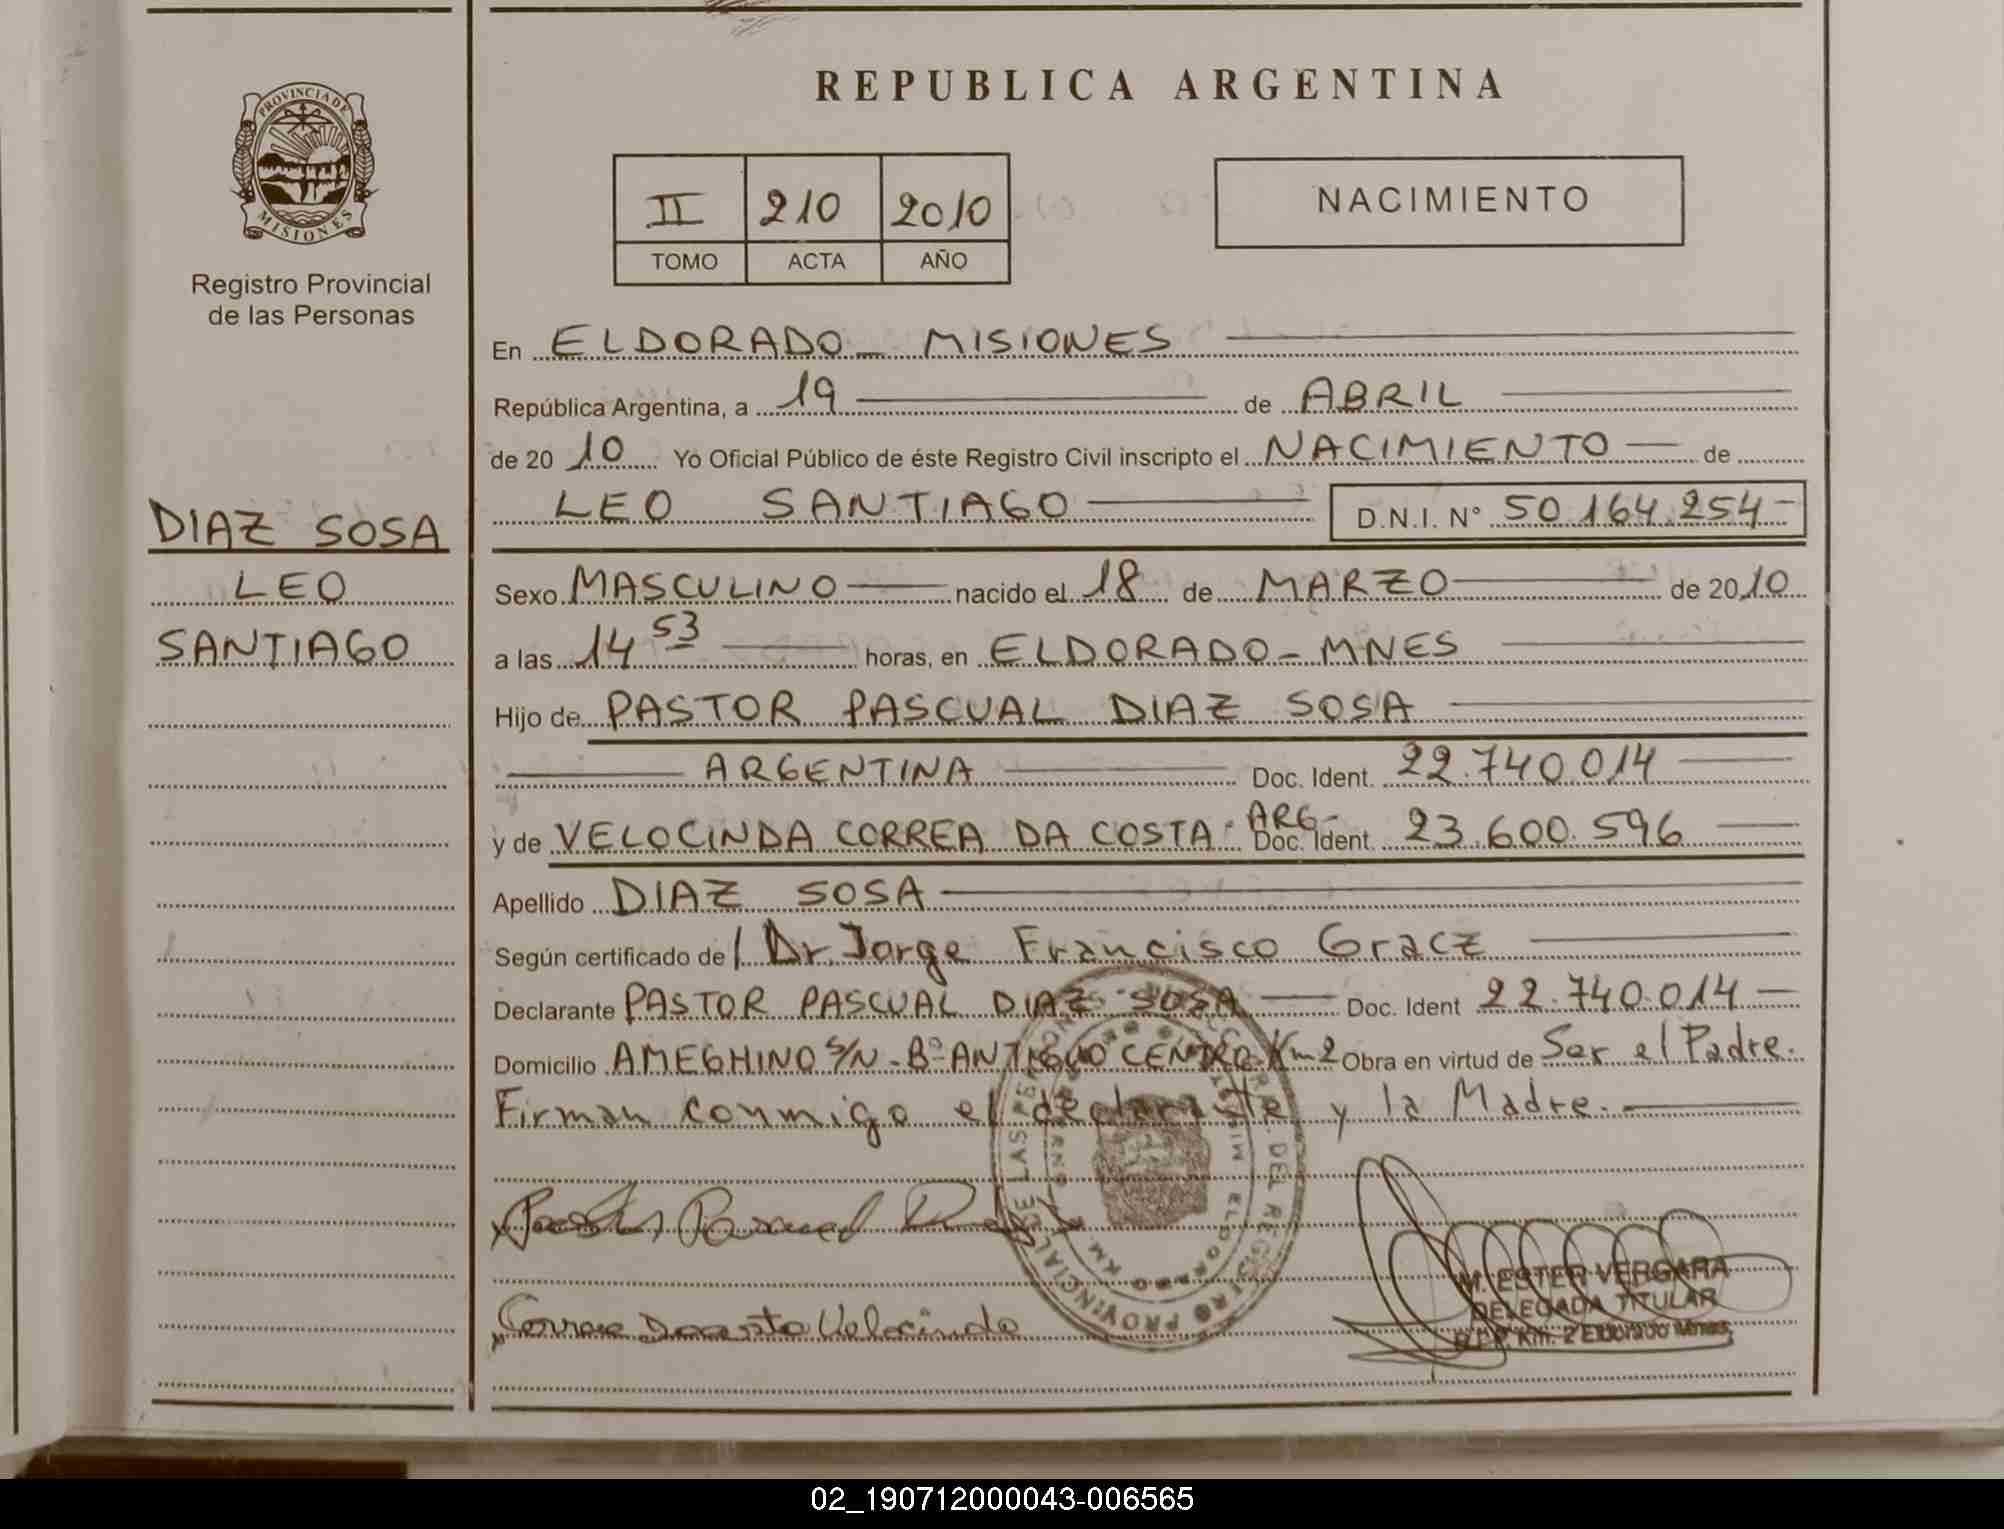 REPUBLICA ARGENTINA
PROVINCIA DE
MISIONES
Registro Provincial
de las Personas
II 210 2010
TOMO ACTA AÑO
NACIMIENTO
DIAZ SOSA
LEO
SANTIAGO
En ELDORADO - MISIONES
República Argentina, a 19 de ABRIL
de 20 10 Yo Oficial Público de éste Registro Civil inscripto el NACIMIENTO de
LEO SANTIAGO D.N.I. N° 50.164.254-
Sexo MASCULINO nacido el 18 de MARZO de 20 10
a las 14 53 horas, en ELDORADO - MNES
Hijo de PASTOR PASCUAL DIAZ SOSA
ARGENTINA Doc. Ident. 22.740.014
y de VELOCINDA CORREA DA COSTA - ARG- Doc. Ident. 23.600.596
Apellido DIAZ SOSA
Según certificado de Dr. Jorge Francisco Gracz
Declarante PASTOR PASCUAL DIAZ SOSA Doc. Ident 22.740.014
Domicilio AMEGHINO S/N - B° ANTIGUO CENTRO Km 2 Obra en virtud de Ser el Padre.
Firman conmigo el declarante y la Madre.
M. ESTER VERGARA
DELEGADA TITULAR
R.P.P. Km. 2 Eldorado Mnes.
02_190712000043-006565